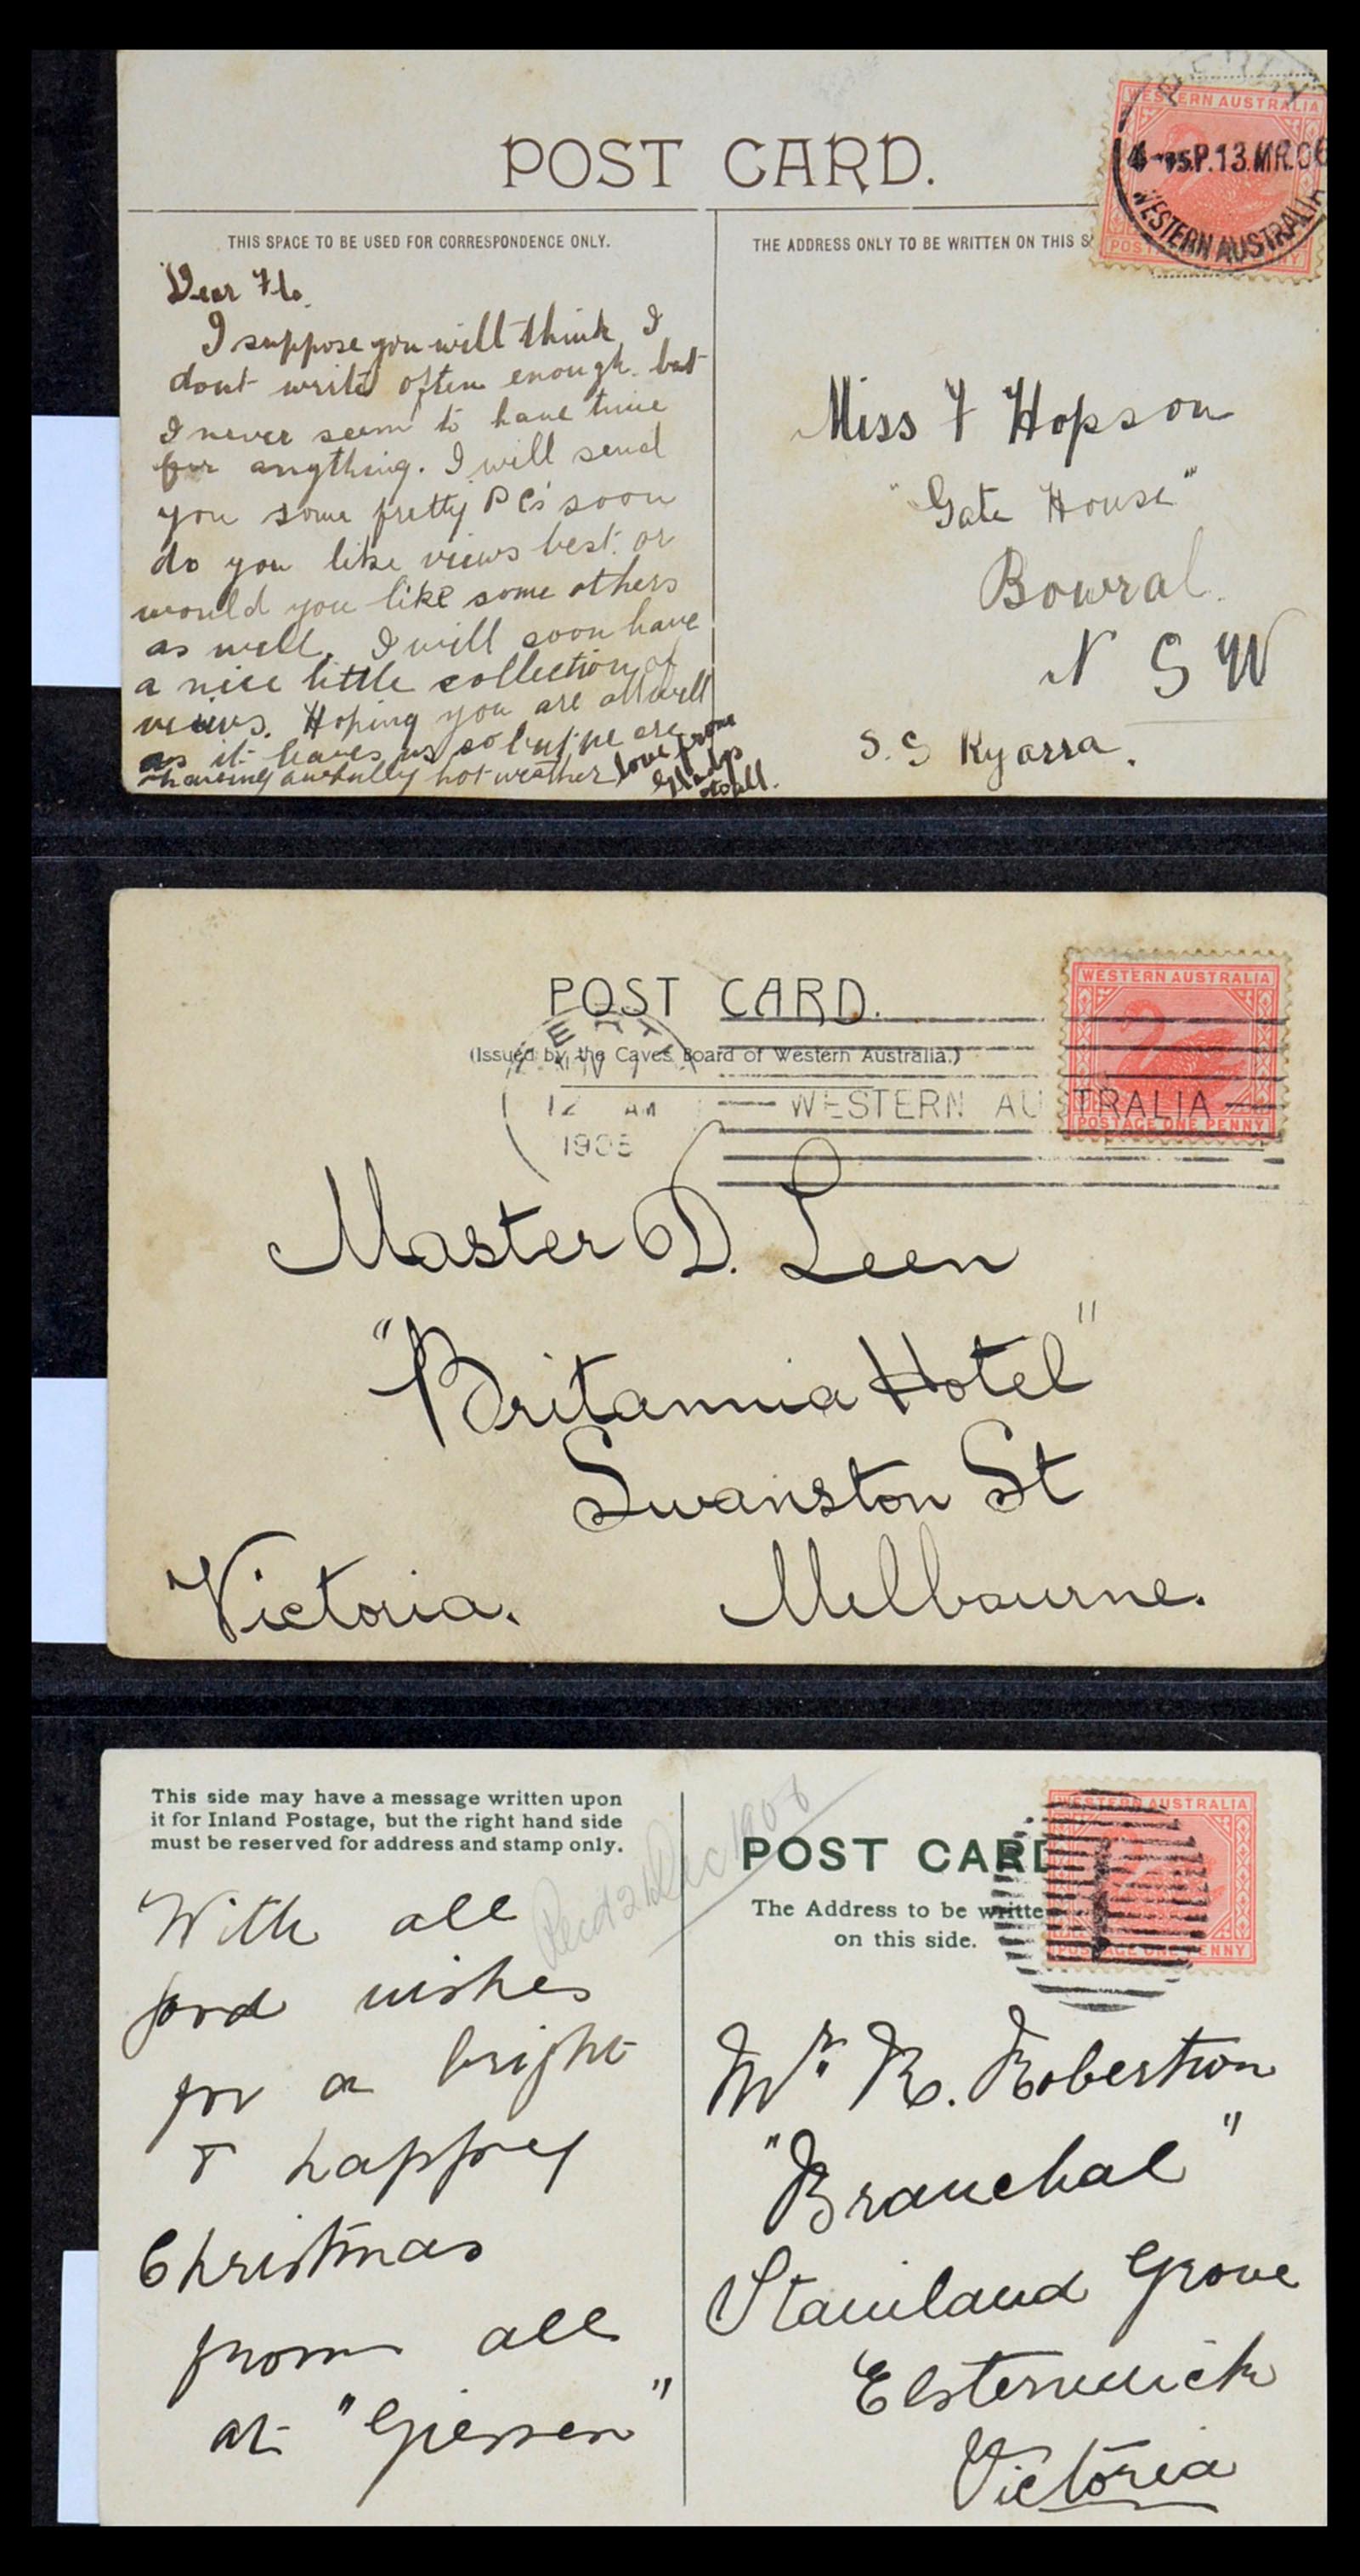 POST CARD.
WESTERN AUSTRALIA
4-15.P.13.MR.06
WESTERN AUSTRALIA
THIS SPACE TO BE USED FOR CORRESPONDENCE ONLY.
THE ADDRESS ONLY TO BE WRITTEN ON THIS S
Dear Flo.
I suppose you will think I
dont write often enough. but
I never seem to have time
for anything. I will send
you some pretty P Cs soon
do you like views best. or
would you like some others
as well. I will soon have
a nice little collection of
views. Hoping you are all well
as it leaves us so but we are
having awfully hot weather love from
Gladys
to all.
Miss F Hopson
"Gate House"
Bowral.
N S W
S. S Kyarra.
POST CARD.
(Issued by the Caves Board of Western Australia.)
WESTERN AUSTRALIA
POSTAGE ONE PENNY
12 AM
1905
WESTERN AU TRALIA
Master D. Leen
"Britannia Hotel"
Swanston St
Melbourne.
Victoria.
This side may have a message written upon
it for Inland Postage, but the right hand side
must be reserved for address and stamp only.
With all
fond wishes
for a bright
& happy
Christmas
from all
at "Giessen"
Recd 21 Dec 1908
POST CARD
The Address to be writte
on this side.
WESTERN AUSTRALIA
POSTAGE ONE PENNY
Mr. R. Robertson
"Branchal"
Staniland Grove
Elsternwick
Victoria